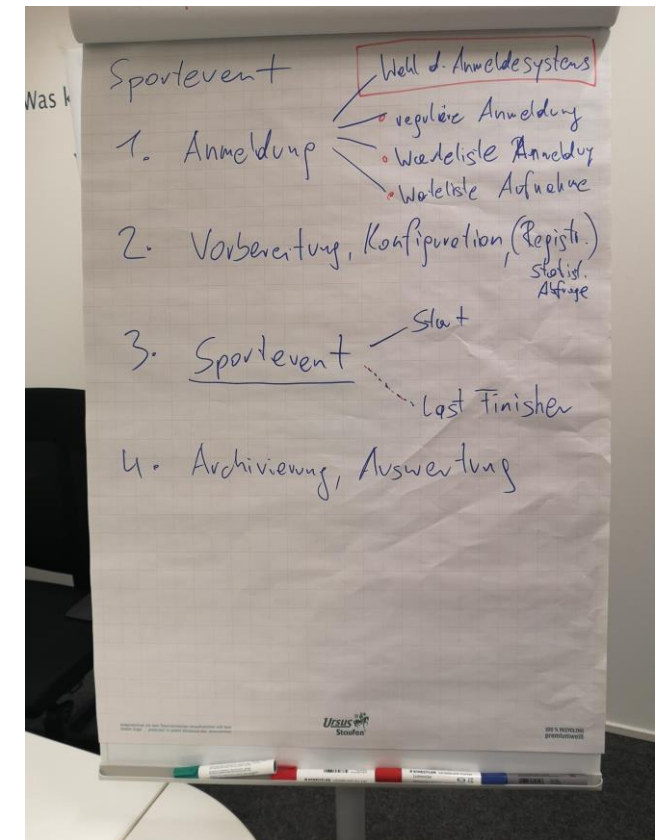 Was k
Sportevent
Wahl d. Anmeldesystems
1. Anmeldung
reguläre Anmeldung
Warteliste Anmeldung
Warteliste Aufnahme
2. Vorbereitung, Konfiguration, (Registr.)
Statist.
Abfrage
3. Sportevent
Start
Last Finisher
4. Archivierung, Auswertung
Ursus
Staufen
100 % RECYCLING
premiumweiß